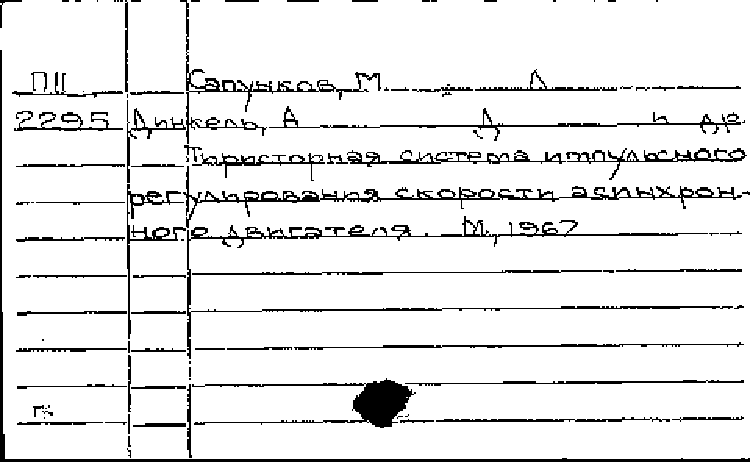 П11 Сапунков, М Л
2295 Динкель, А Д и др
Тиристорная система импульсного
регулирования скорости асинхрон-
ного двигателя. М, 1967